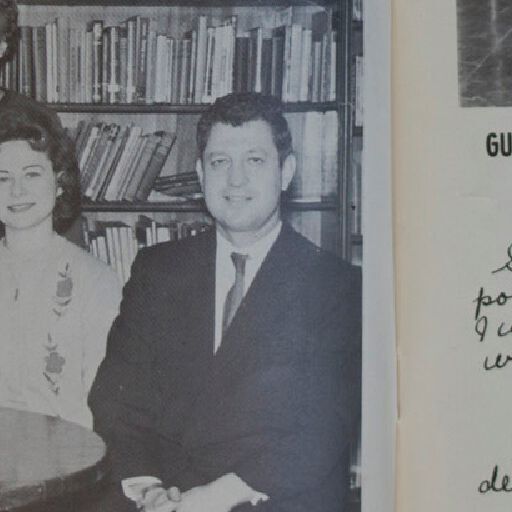 GU
S
po
I w
w
de